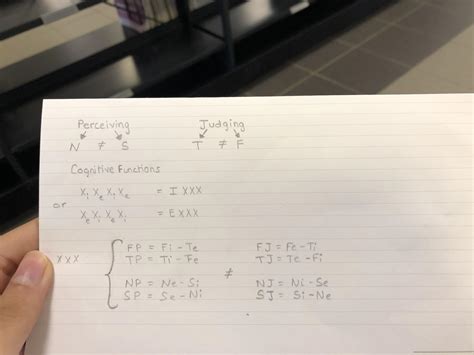 Perceiving Judging
N ≠ S T ≠ F
Cognitive Functions
Xi Xe Xi Xe = I XXX
or
Xe Xi Xe Xi = E XXX
FP = Fi - Te FJ = Fe - Ti
TP = Ti - Fe TJ = Te - Fi
XXX { ≠
NP = Ne - Si NJ = Ni - Se
SP = Se - Ni SJ = Si - Ne